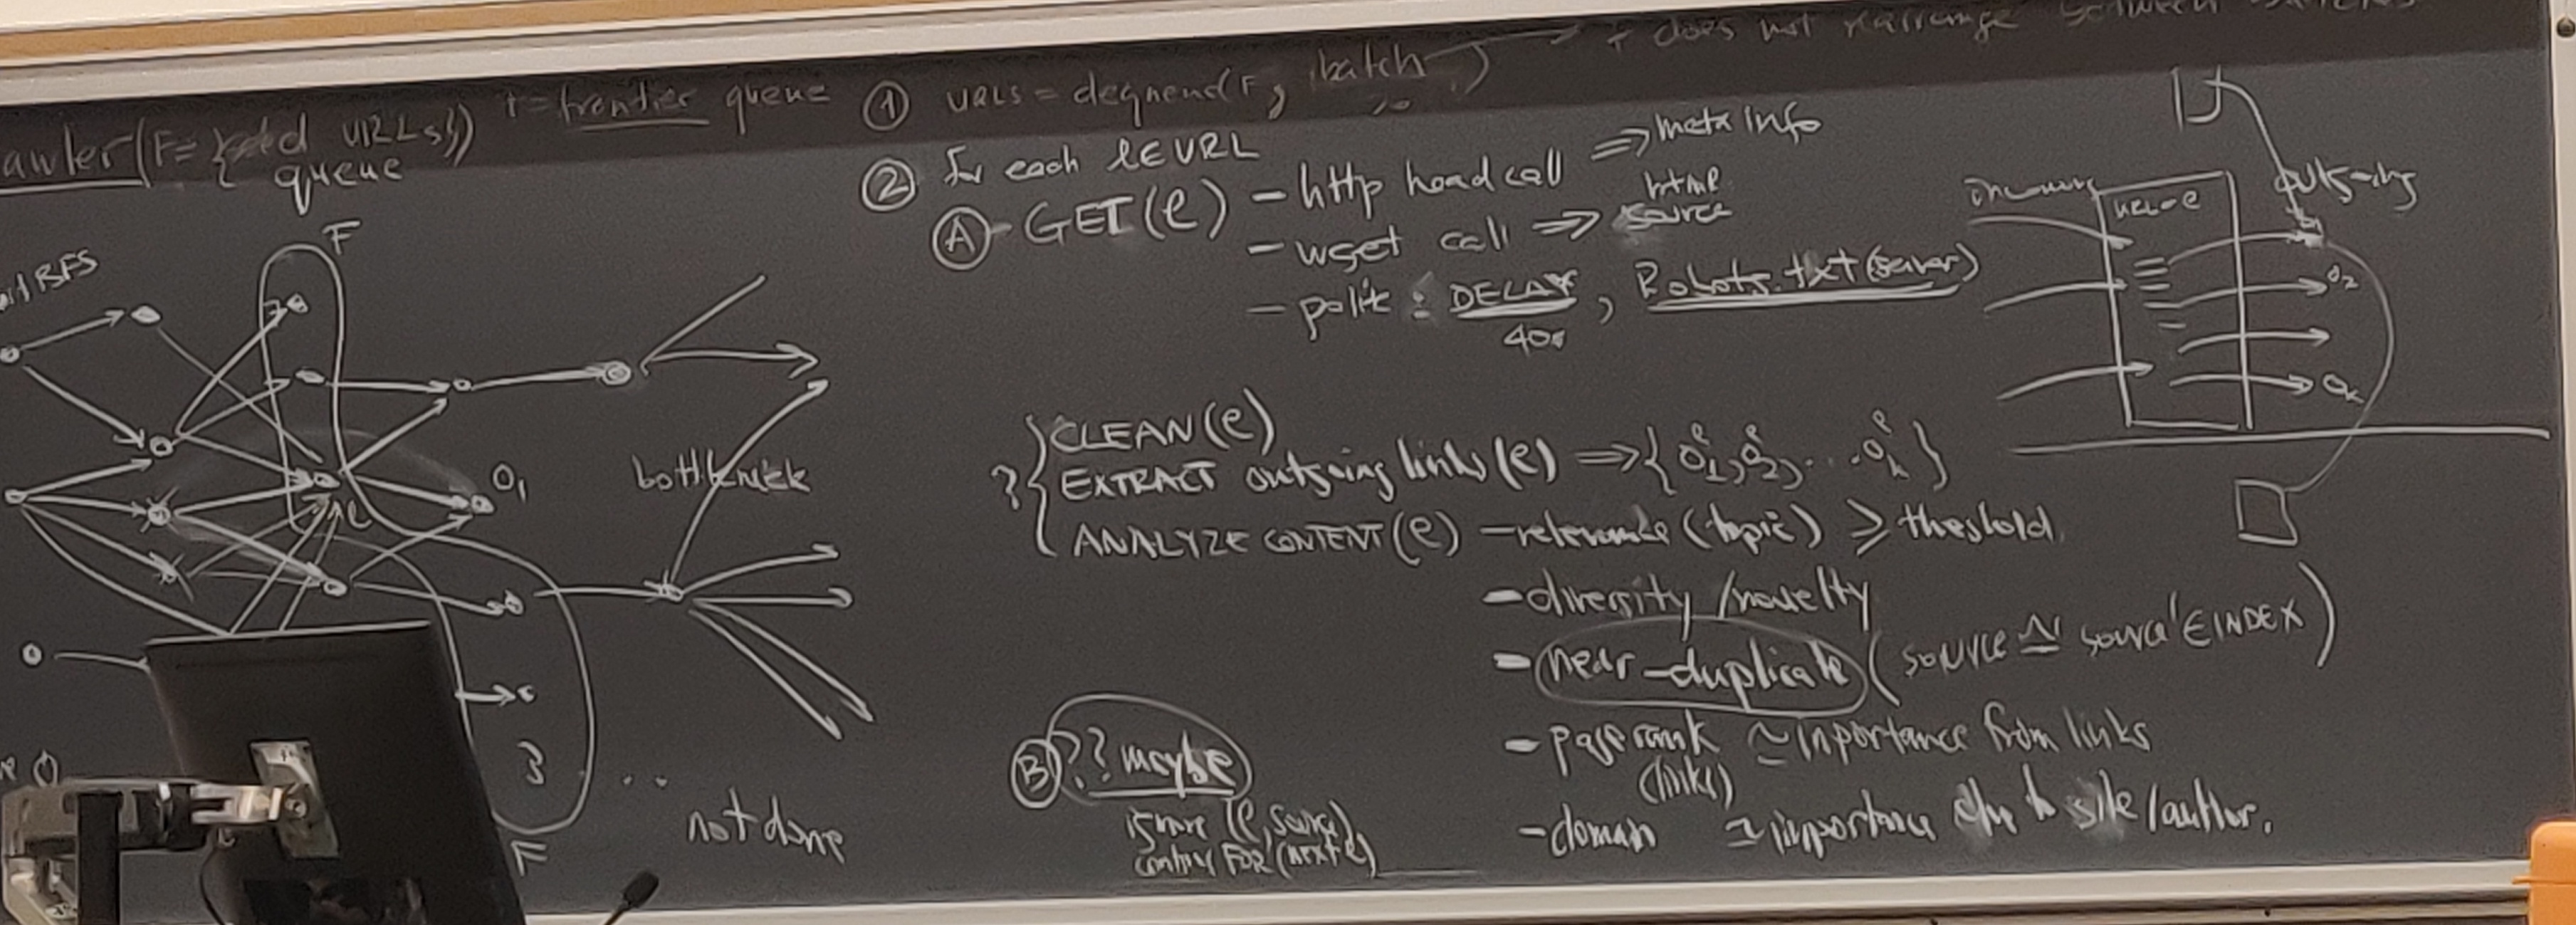 awler(F={seed URLs})
queue
F=frontier queue
① URLs = dequeue(F, batch)
F does not rearrange between
② for each ℓ∈URL
Ⓐ - GET(ℓ) - http head call ⇒ meta info
- wget call ⇒ html source
- polite : DELAY, Robots.txt(server)
BFS
F
O₁
bottleneck
{ CLEAN(ℓ)
? { EXTRACT outgoing links(ℓ) ⇒ {O₁^ℓ, O₂^ℓ, ... O_k^ℓ}
{ ANALYZE CONTENT(ℓ) - relevance (topic) ≥ threshold.
- diversity / novelty
- near-duplicate (source ≅ source' ∈ INDEX)
- page rank ≃ importance from links
(links)
- domain ≃ importance due to site/author.
Ⓑ ?? maybe
ignore (ℓ, source)
continue FOR (next ℓ)
ℓ
3
...
not done
F
incoming
URL=ℓ
outgoing
O₁
O₂
O_k